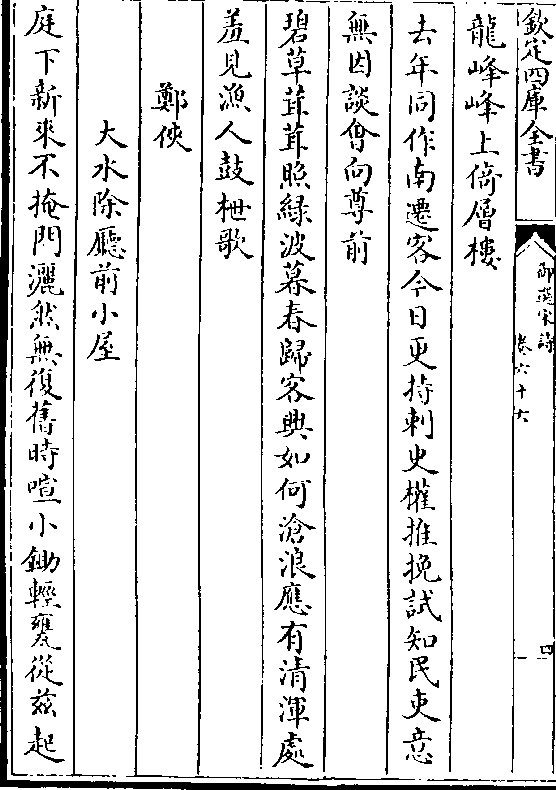 欽定四庫全書
御選宋詩
卷六十六
四
龍峰峰上倚層樓
去年同作南遷客今日更持刺史權推挽試知民吏意
無因談㑹向尊前
碧草茸茸照綠波暮春歸客興如何滄浪應有清渾處
羞見漁人鼓枻歌
鄭俠
大水除廳前小屋
庭下新來不掩門灑然無復舊時喧小鋤輕甕從兹起